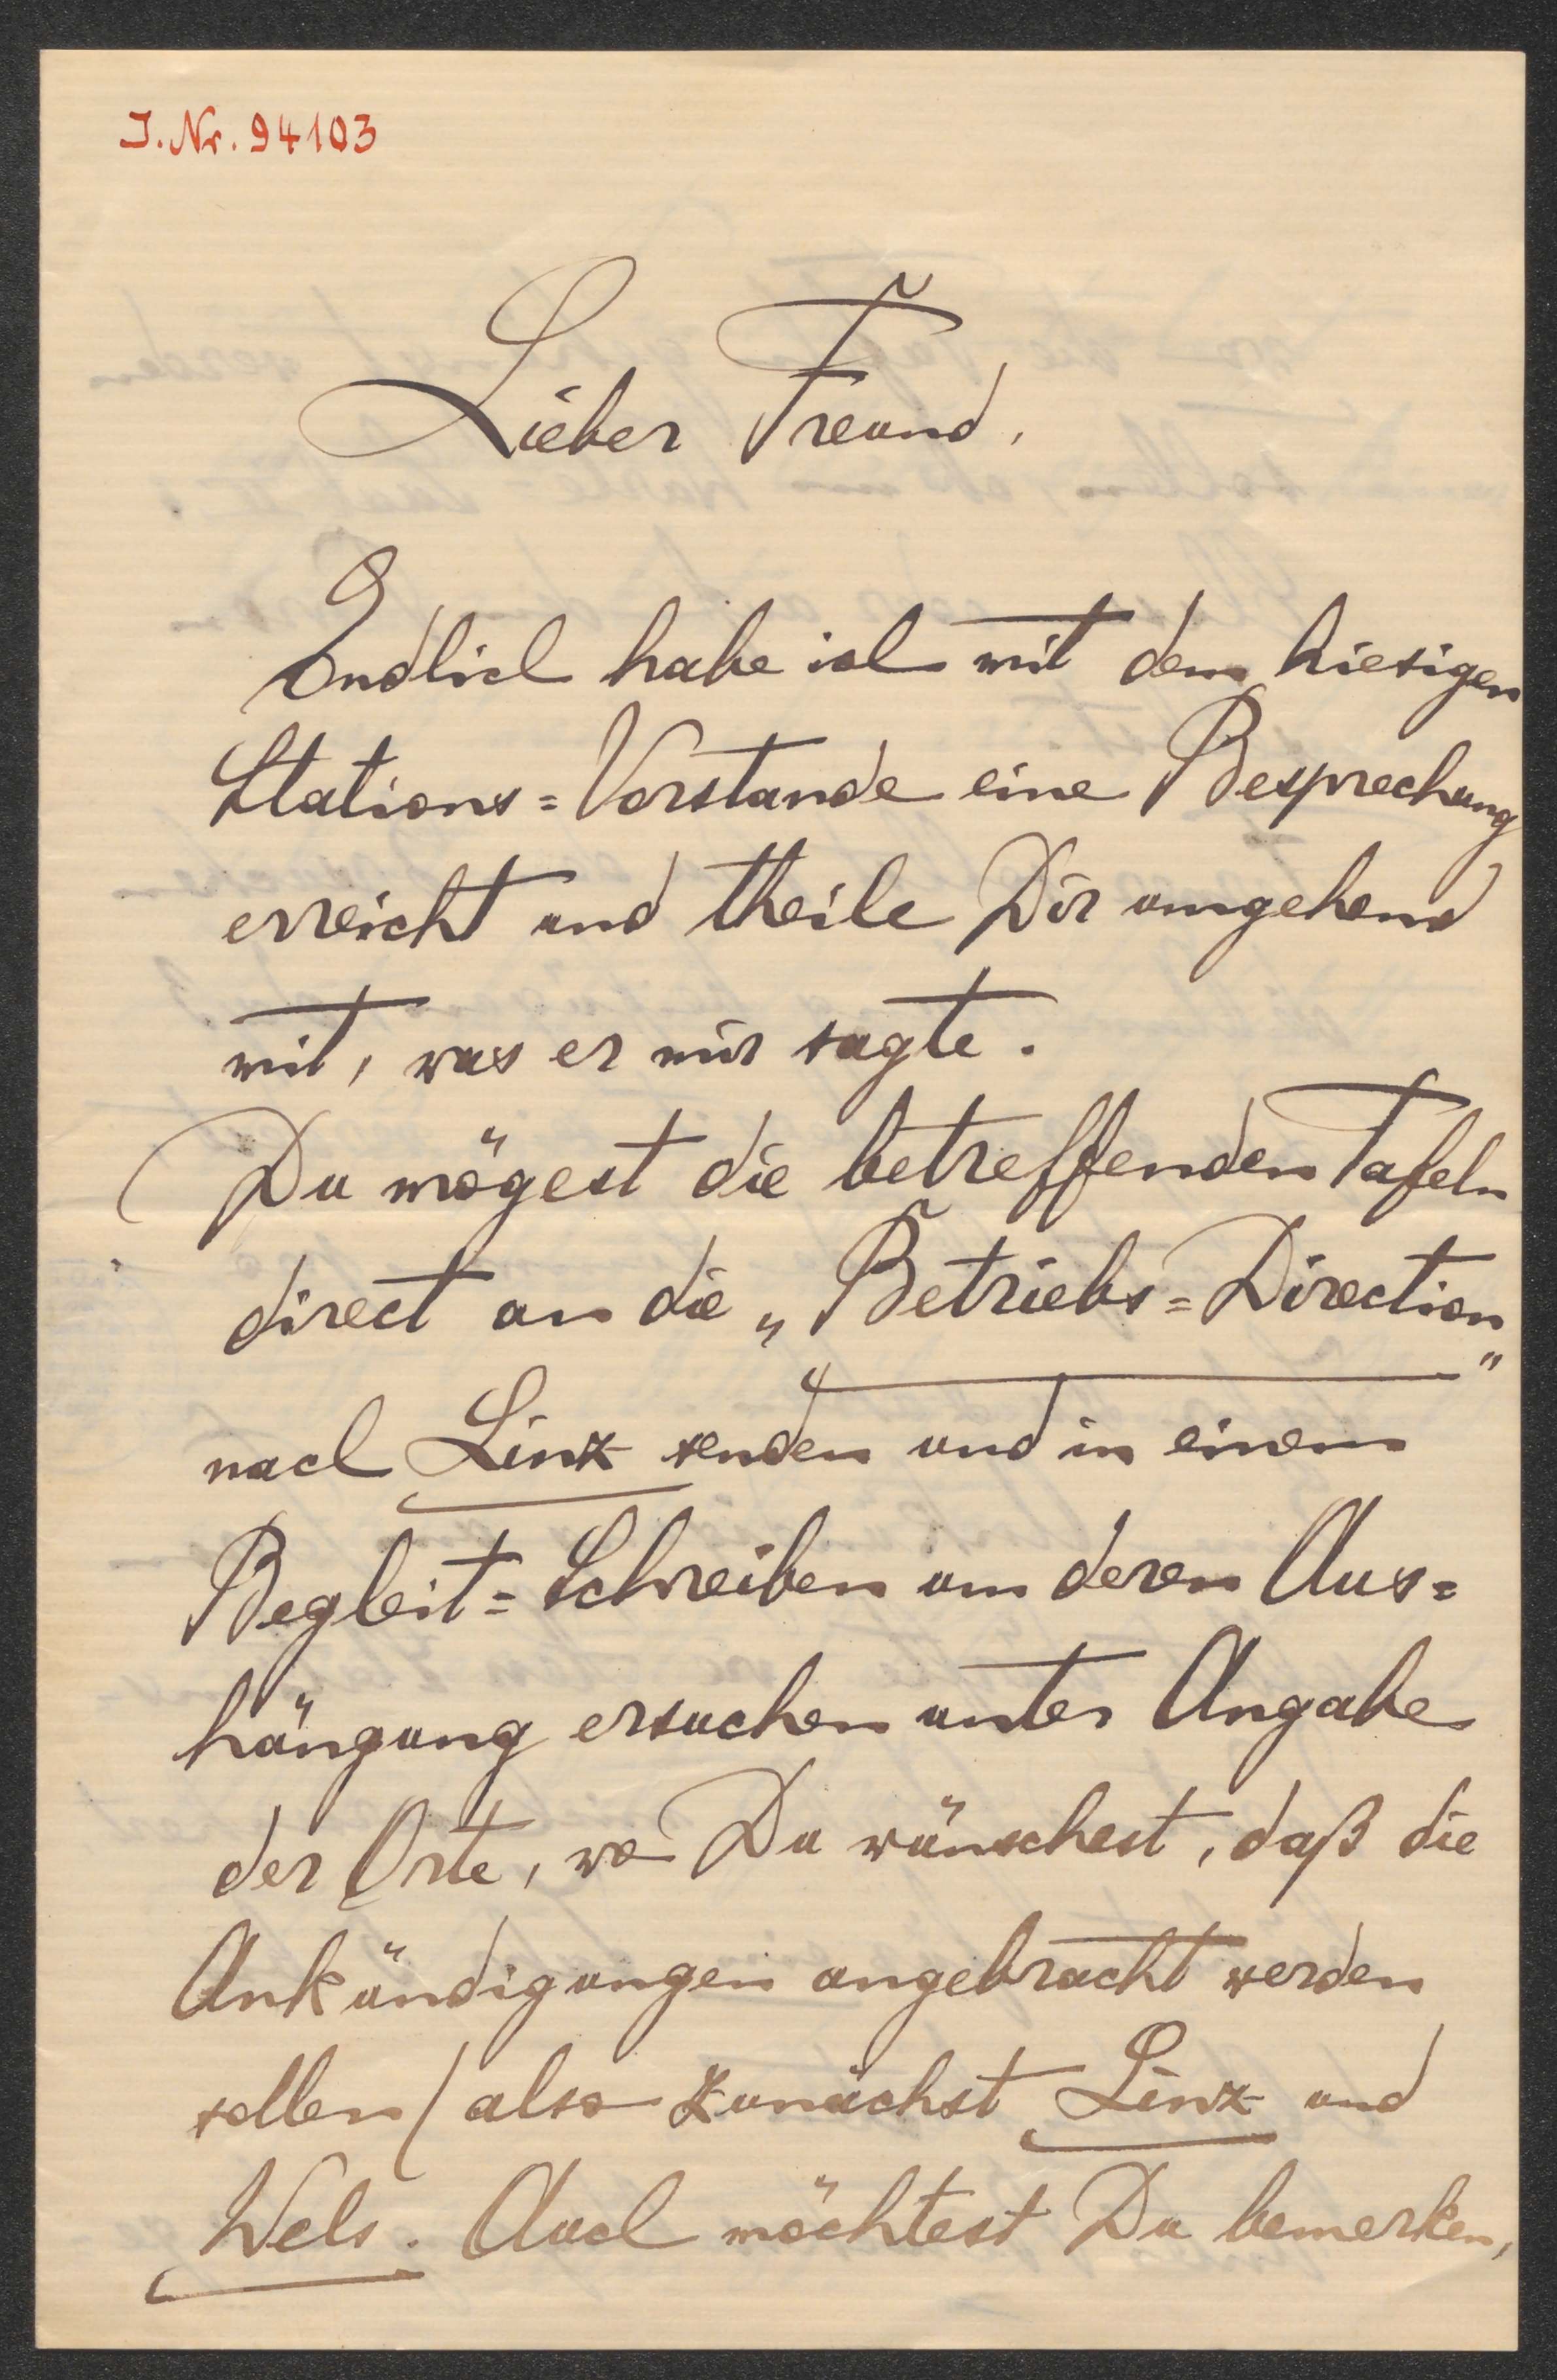 I. Nr. 94103
Lieber Freund,
Endlich habe ich mit dem hiesigen
Stations=Vorstande eine Besprechung
erreicht und theile Dir umgehend
mit, was er mir sagte.
Du mögest die betreffenden Tafeln
direct an die „Betriebs=Direction"
nach Linz senden und in einem
Begleit=Schreiben um deren Aus=
hängung ersuchen unter Angabe
der Orte, wo Du wünschest, daß die
Ankündigungen angebracht werden
sollen (also zunächst Linz und
Wels. Auch möchtest Du bemerken,